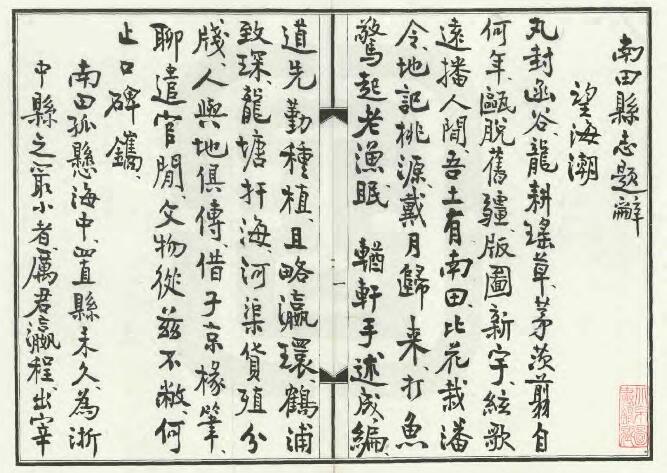 南田縣志題辭
望海潮
丸封函谷、龍耕瑤草、茅茨翦自
何年、甌脫舊疆、版圖新宇、絃歌
遠播人間、吾土有南田、比花栽潘
令、地記桃源、戴月歸來、打魚
驚起老漁眠　輶軒手述成編、
一
道先勤種植、且略瀛環、鶴浦
致琛、龍塘扞海、河渠貨殖分
牋、人與地俱傳、借子京椽筆、
聊遣官閒、文物從茲不敝、何
止口碑鐫
南田孤懸海中、置縣未久、為浙
中縣之最小者、厲君瀛程、出宰